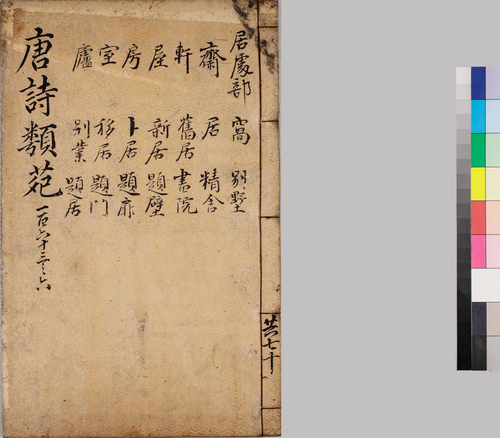 居處部 窩 別墅
齋 居 精舍
軒 舊居 書院
屋 新居 題壁
房 卜居 題扉
室 移居 題門
廬 別業 題居
唐詩類苑 一百六十三之六
共七十